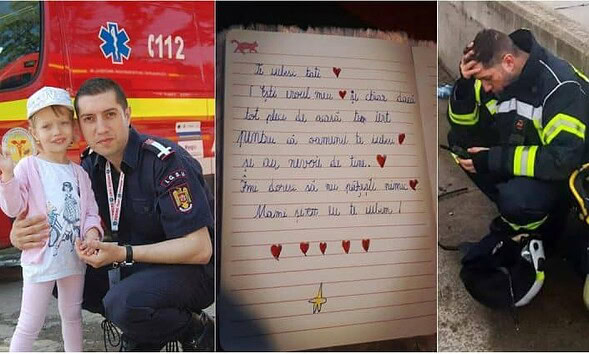 C112
Te iubesc tati
Ești eroul meu și chiar dacă
tot pleci de acasă iert
pentru că oamenii te iubesc
și au nevoie de tine.
Îmi doresc să nu pățești nimic
Mami eu te iubim !